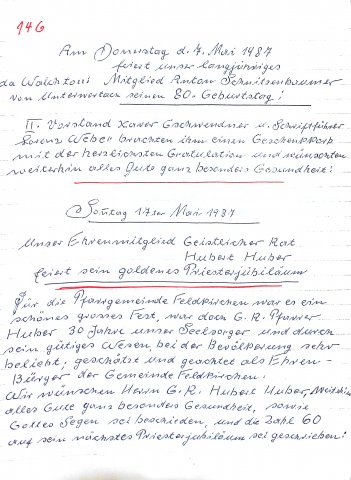 146
Am Donnerstag d. 7. Mai 1987
feiert unser langjähriges
da Walchtoni Mitglied Anton Schnitzenbaumer
von Unterwertach seinen 80. Geburtstag!
II. Vorstand Xaver Gschwendner u. Schriftführer
Lorenz Weber brachten ihm einen Geschenkkorb
mit der herzlichsten Gratulation und wünschten
weiterhin alles Gute ganz besonders Gesundheit!
Sontag 17ter Mai 1987
Unser Ehrenmitglied Geistlicher Rat
Hubert Huber
feiert sein goldenes Priesterjubiläum
Für die Pfarrgemeinde Feldkirchen war es ein
schönes grosses Fest, war doch G.R. Pfarrer
Huber 30 Jahre unser Seelsorger und durch
sein gütiges Wesen, bei der Bevölkerung sehr
beliebt, geschätzt und geachtet als Ehren-
Bürger der Gemeinde Feldkirchen.
Wir wünschen Herrn G.R. Hubert Huber, Weiterhin
alles Gute ganz besonders Gesundheit, sowie
Gottes Segen sei beschieden, und die Zahl 60
auf sein nächstes Priesterjubiläum sei geschrieben!